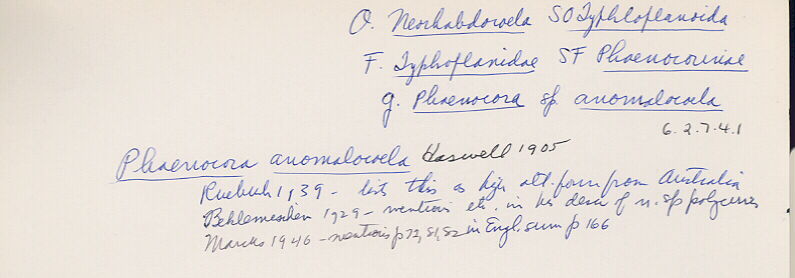 O. Neorhabdocoela SO Typhloplanoida
F. Typhloplanidae SF Phaenocorinae
g. Phaenocora sp. anomalocoela
6.2.7.4.1
Phaenocora anomalocoela Haswell 1905
Ruebush 1939 - lists this as high alt. form from Australia
Beklemeschev 1929 - mentions etc. in his descr of n. sp polycirrus
Marcus 1946 - mentions p 73, 81, 82 in Engl. sum p 166